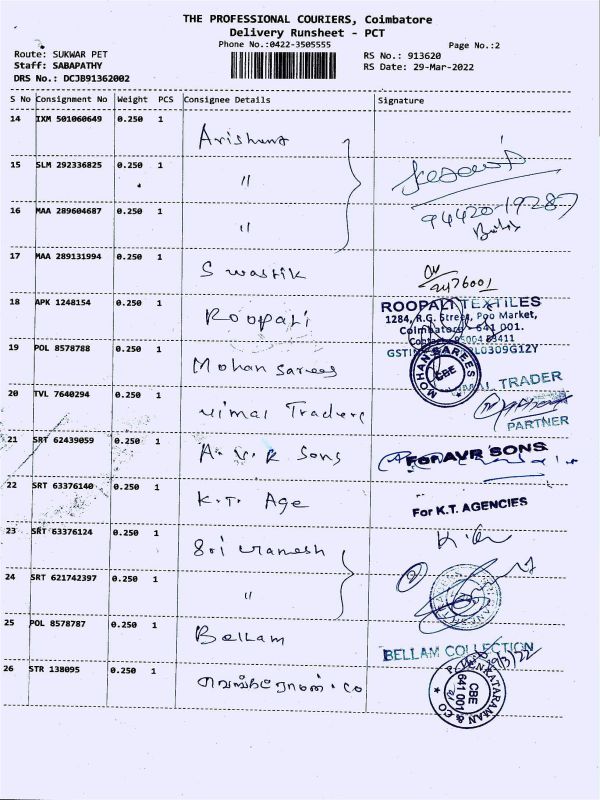 THE PROFESSIONAL COURIERS, Coimbatore
Delivery Runsheet - PCT
Phone No.:0422-3505555
Page No.:2
Route: SUKWAR PET
Staff: SABAPATHY
DRS No.: DCJB91362002
RS No.: 913620
RS Date: 29-Mar-2022
S No Consignment No Weight PCS Consignee Details Signature
14 IXM 501060649 0.250 1
15 SLM 292336825 0.250 1 "
94420-19287
16 MAA 289604687 0.250 1 "
17 MAA 289131994 0.250 1 Swastik
18 APK 1248154 0.250 1 Roopali
ROOPALI TEXTILES
1284, R.G. Street, Poo Market,
Coimbatore - 641 001.
19 POL 8578788 0.250 1 Mohan Sarees
MOHAN SAREES
CBE
20 TVL 7640294 0.250 1 Vimal Traders
TRADER
PARTNER
21 SRT 62439059 0.250 1 A.V.R Sons
For AVR SONS
22 SRT 63376140 0.250 1 K.T. Age
For K.T. AGENCIES
23 SRT 63376124 0.250 1 Sri Ramesh
24 SRT 621742397 0.250 1 "
25 POL 8578787 0.250 1 Bellam
BELLAM COLLECTION
29/3/22
26 STR 138095 0.250 1
VENKATARAMAN & CO
CBE
641 001